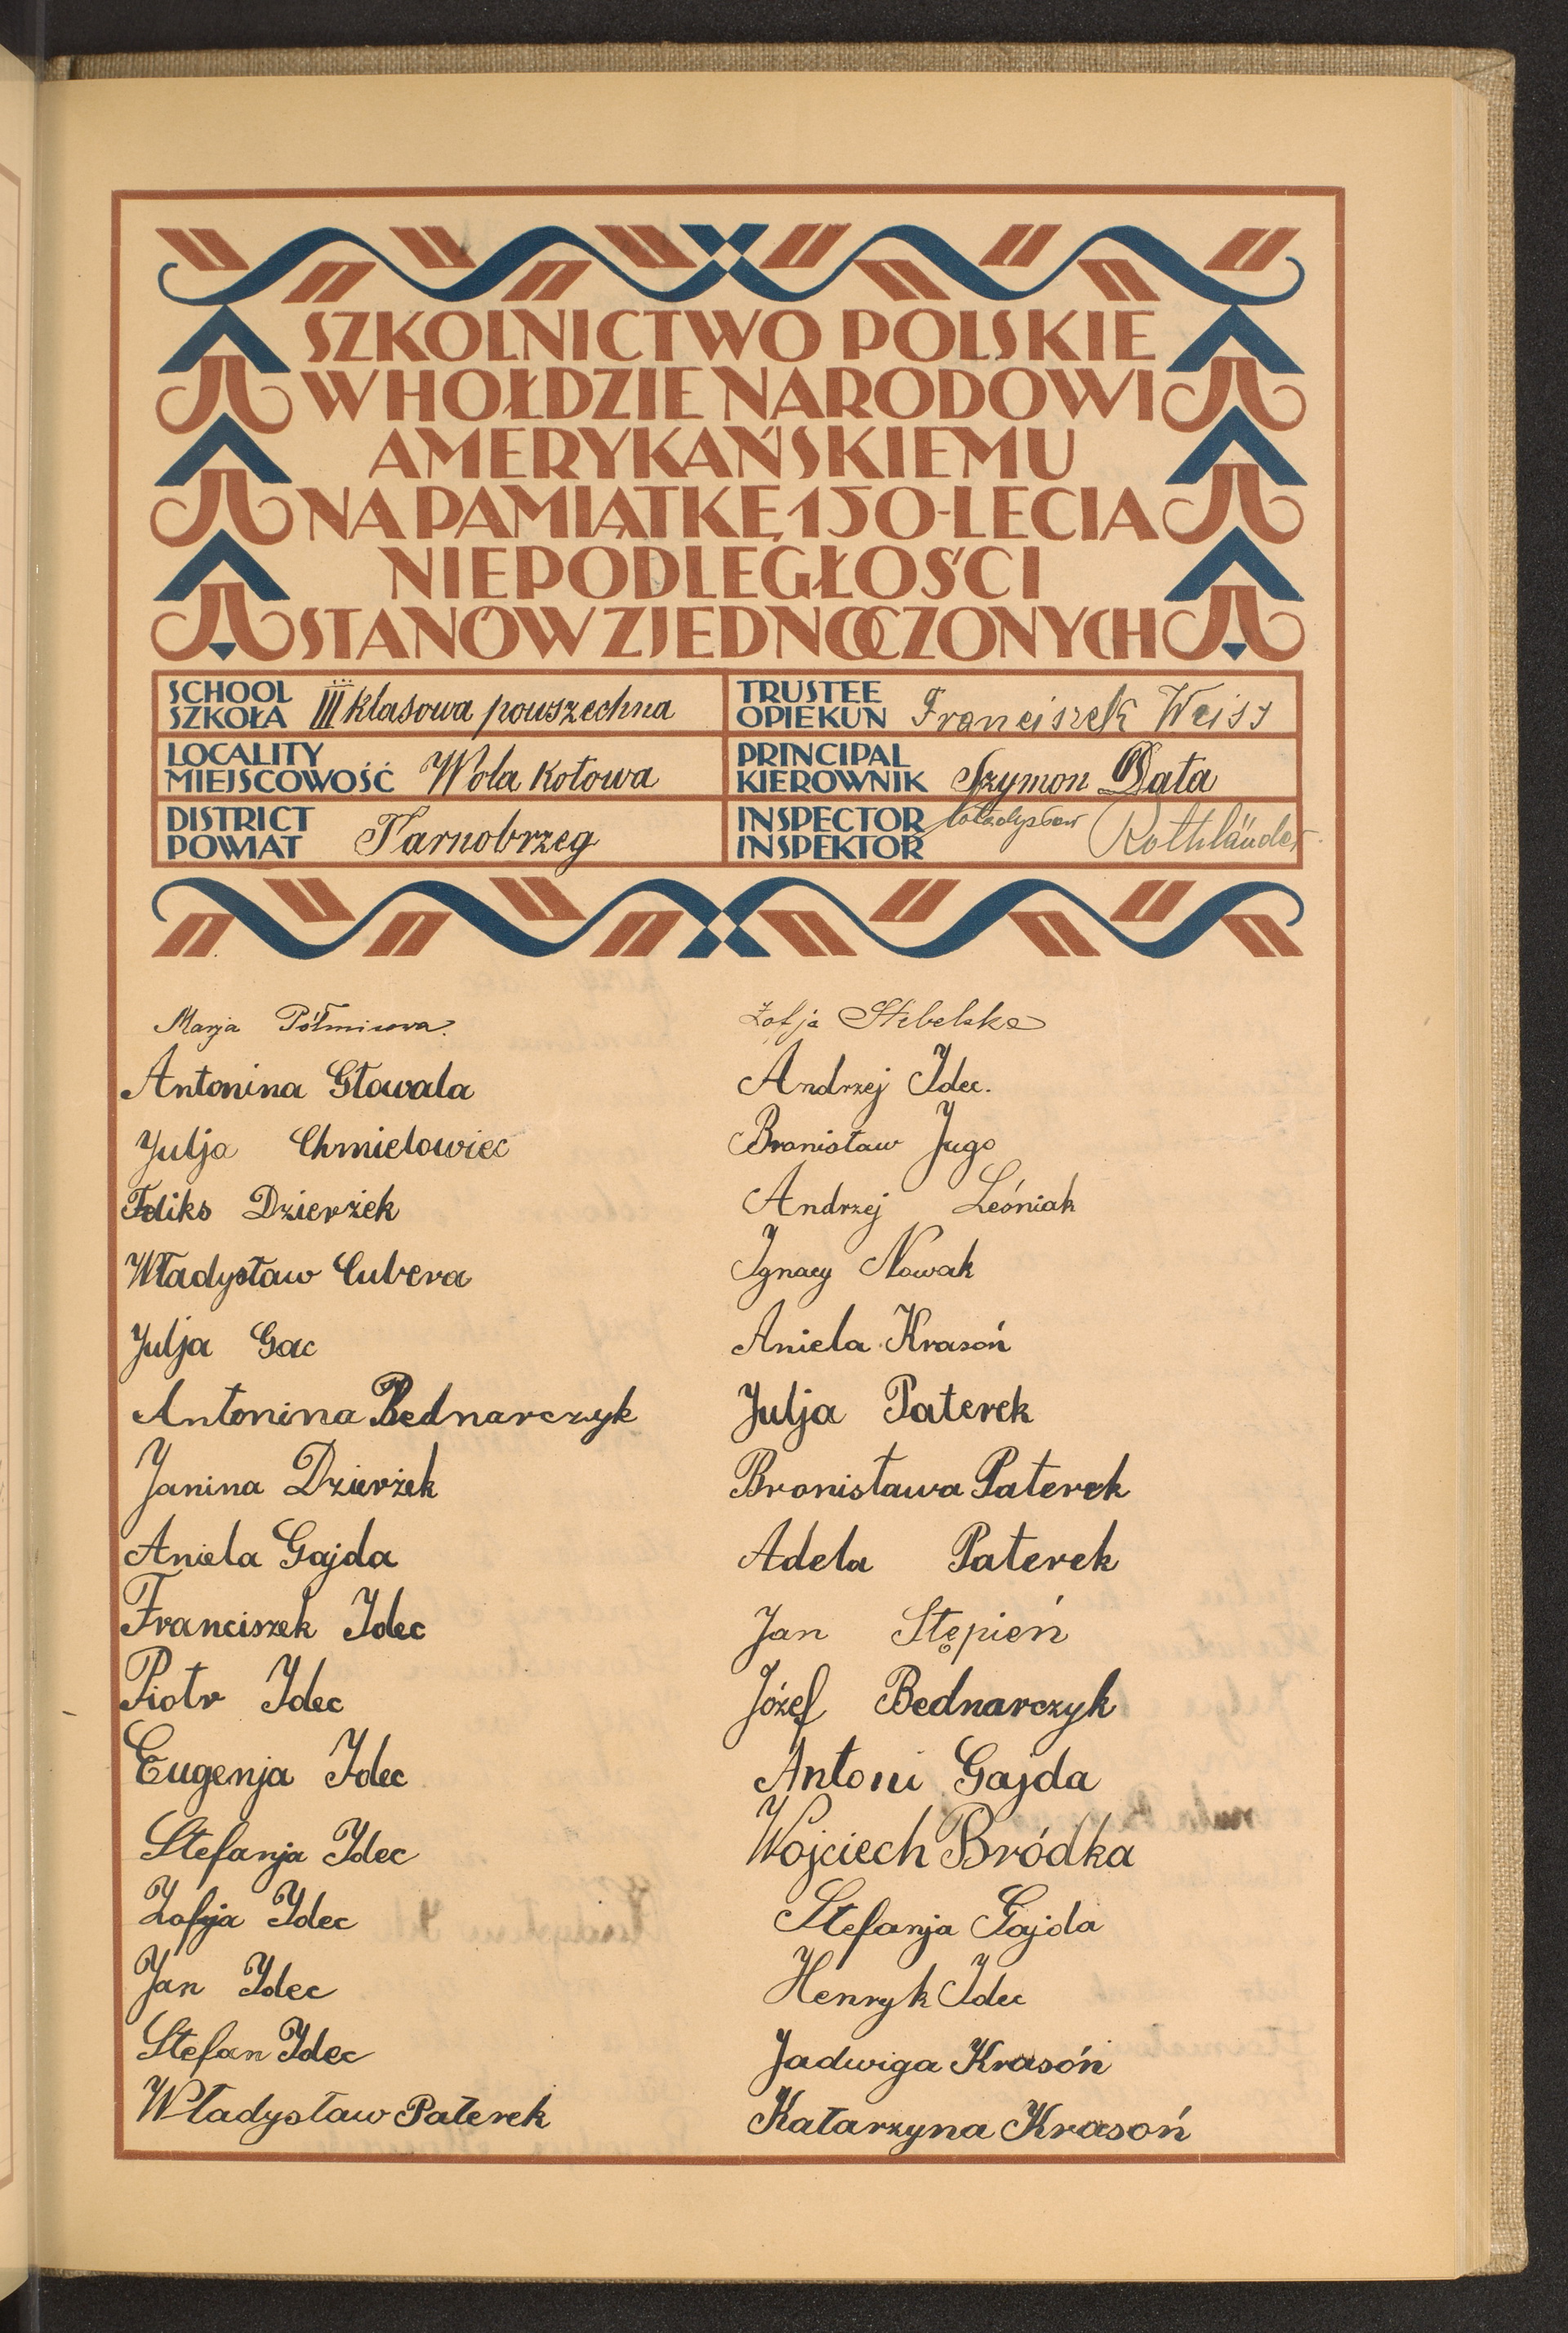 SZKOLNICTWO POLSKIE
W HOŁDZIE NARODOWI
AMERYKAŃSKIEMU
NA PAMIĄTKĘ 150-LECIA
NIEPODLEGŁOŚCI
STANÓW ZJEDNOCZONYCH
SCHOOL
SZKOŁA III klasowa powszechna
LOCALITY
MIEJSCOWOŚĆ Wola Kołowa
DISTRICT
POWIAT Tarnobrzeg
TRUSTEE
OPIEKUN Franciszek Weiss
PRINCIPAL
KIEROWNIK Szymon Data
INSPECTOR
INSPEKTOR Władysław Rothländer
Marja
Antonina Głowala
Julja Chmielowiec
Feliks Dzierżek
Władysław Cubera
Julja Gac
Antonina Bednarczyk
Janina Dzierżek
Aniela Gajda
Franciszek Idec
Piotr Idec
Eugenja Idec
Stefanja Idec
Zofja Idec
Jan Idec
Stefan Idec
Władysław Paterek
Zofja Stebelska
Andrzej Idec.
Bronisław Jugo
Andrzej Leśniak
Ignacy Nowak
Aniela Krasoń
Julja Paterek
Bronisława Paterek
Adela Paterek
Jan Stępień
Józef Bednarczyk
Antoni Gajda
Wojciech Bródka
Stefanja Gajda
Henryk Idec
Jadwiga Krasoń
Katarzyna Krasoń